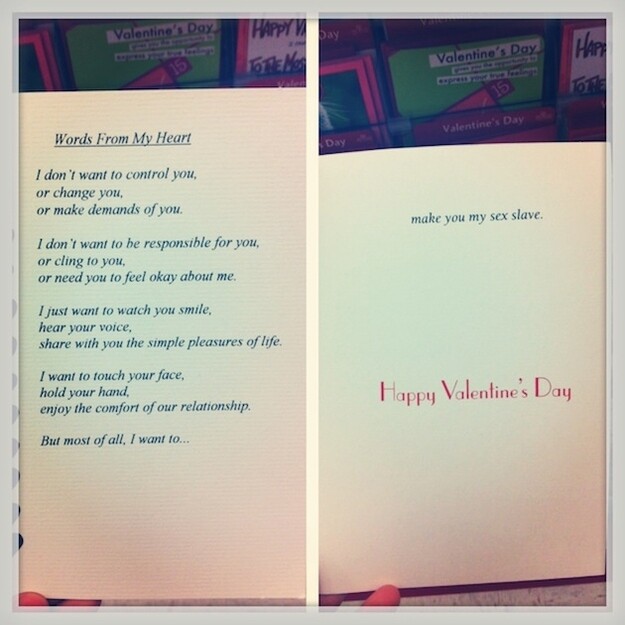 Valentine's Day
gives you the opportunity to
express your true feelings
15
HAPPY VA
TO THE MOS
Words From My Heart
I don't want to control you,
or change you,
or make demands of you.
I don't want to be responsible for you,
or cling to you,
or need you to feel okay about me.
I just want to watch you smile,
hear your voice,
share with you the simple pleasures of life.
I want to touch your face,
hold your hand,
enjoy the comfort of our relationship.
But most of all, I want to...
Valentine's Day
Valentine's Day
gives you the opportunity to
express your true feelings
15
HAPP
TO TH
Day
Valentine's Day
make you my sex slave.
Happy Valentine's Day